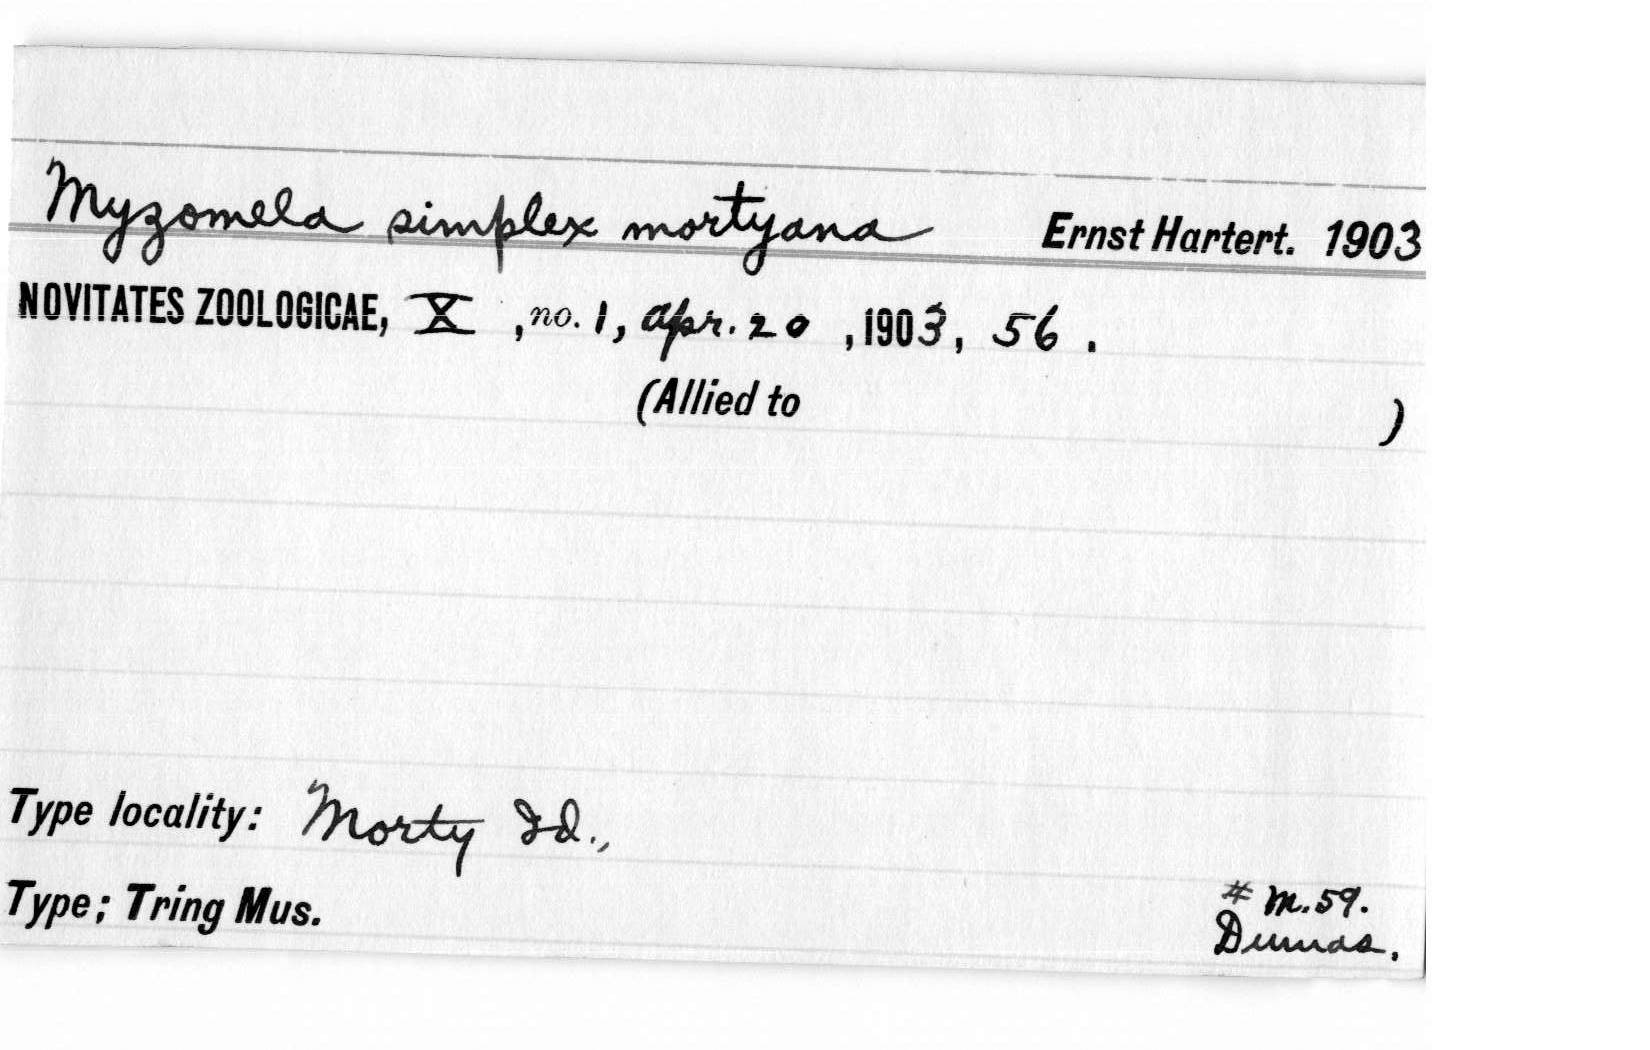 Myzomela simplex mortyana Ernst Hartert. 1903
NOVITATES ZOOLOGICAE, X, no. 1, Apr. 20, 1903, 56.
(Allied to )
Type locality: Morty Id.,
Type; Tring Mus.
# M.59.
Dumas.